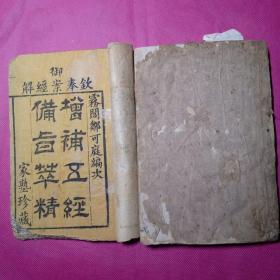 御
欽奉案經解
霧閣鄒可庭編次
增補五經
備旨萃精
家塾珍藏